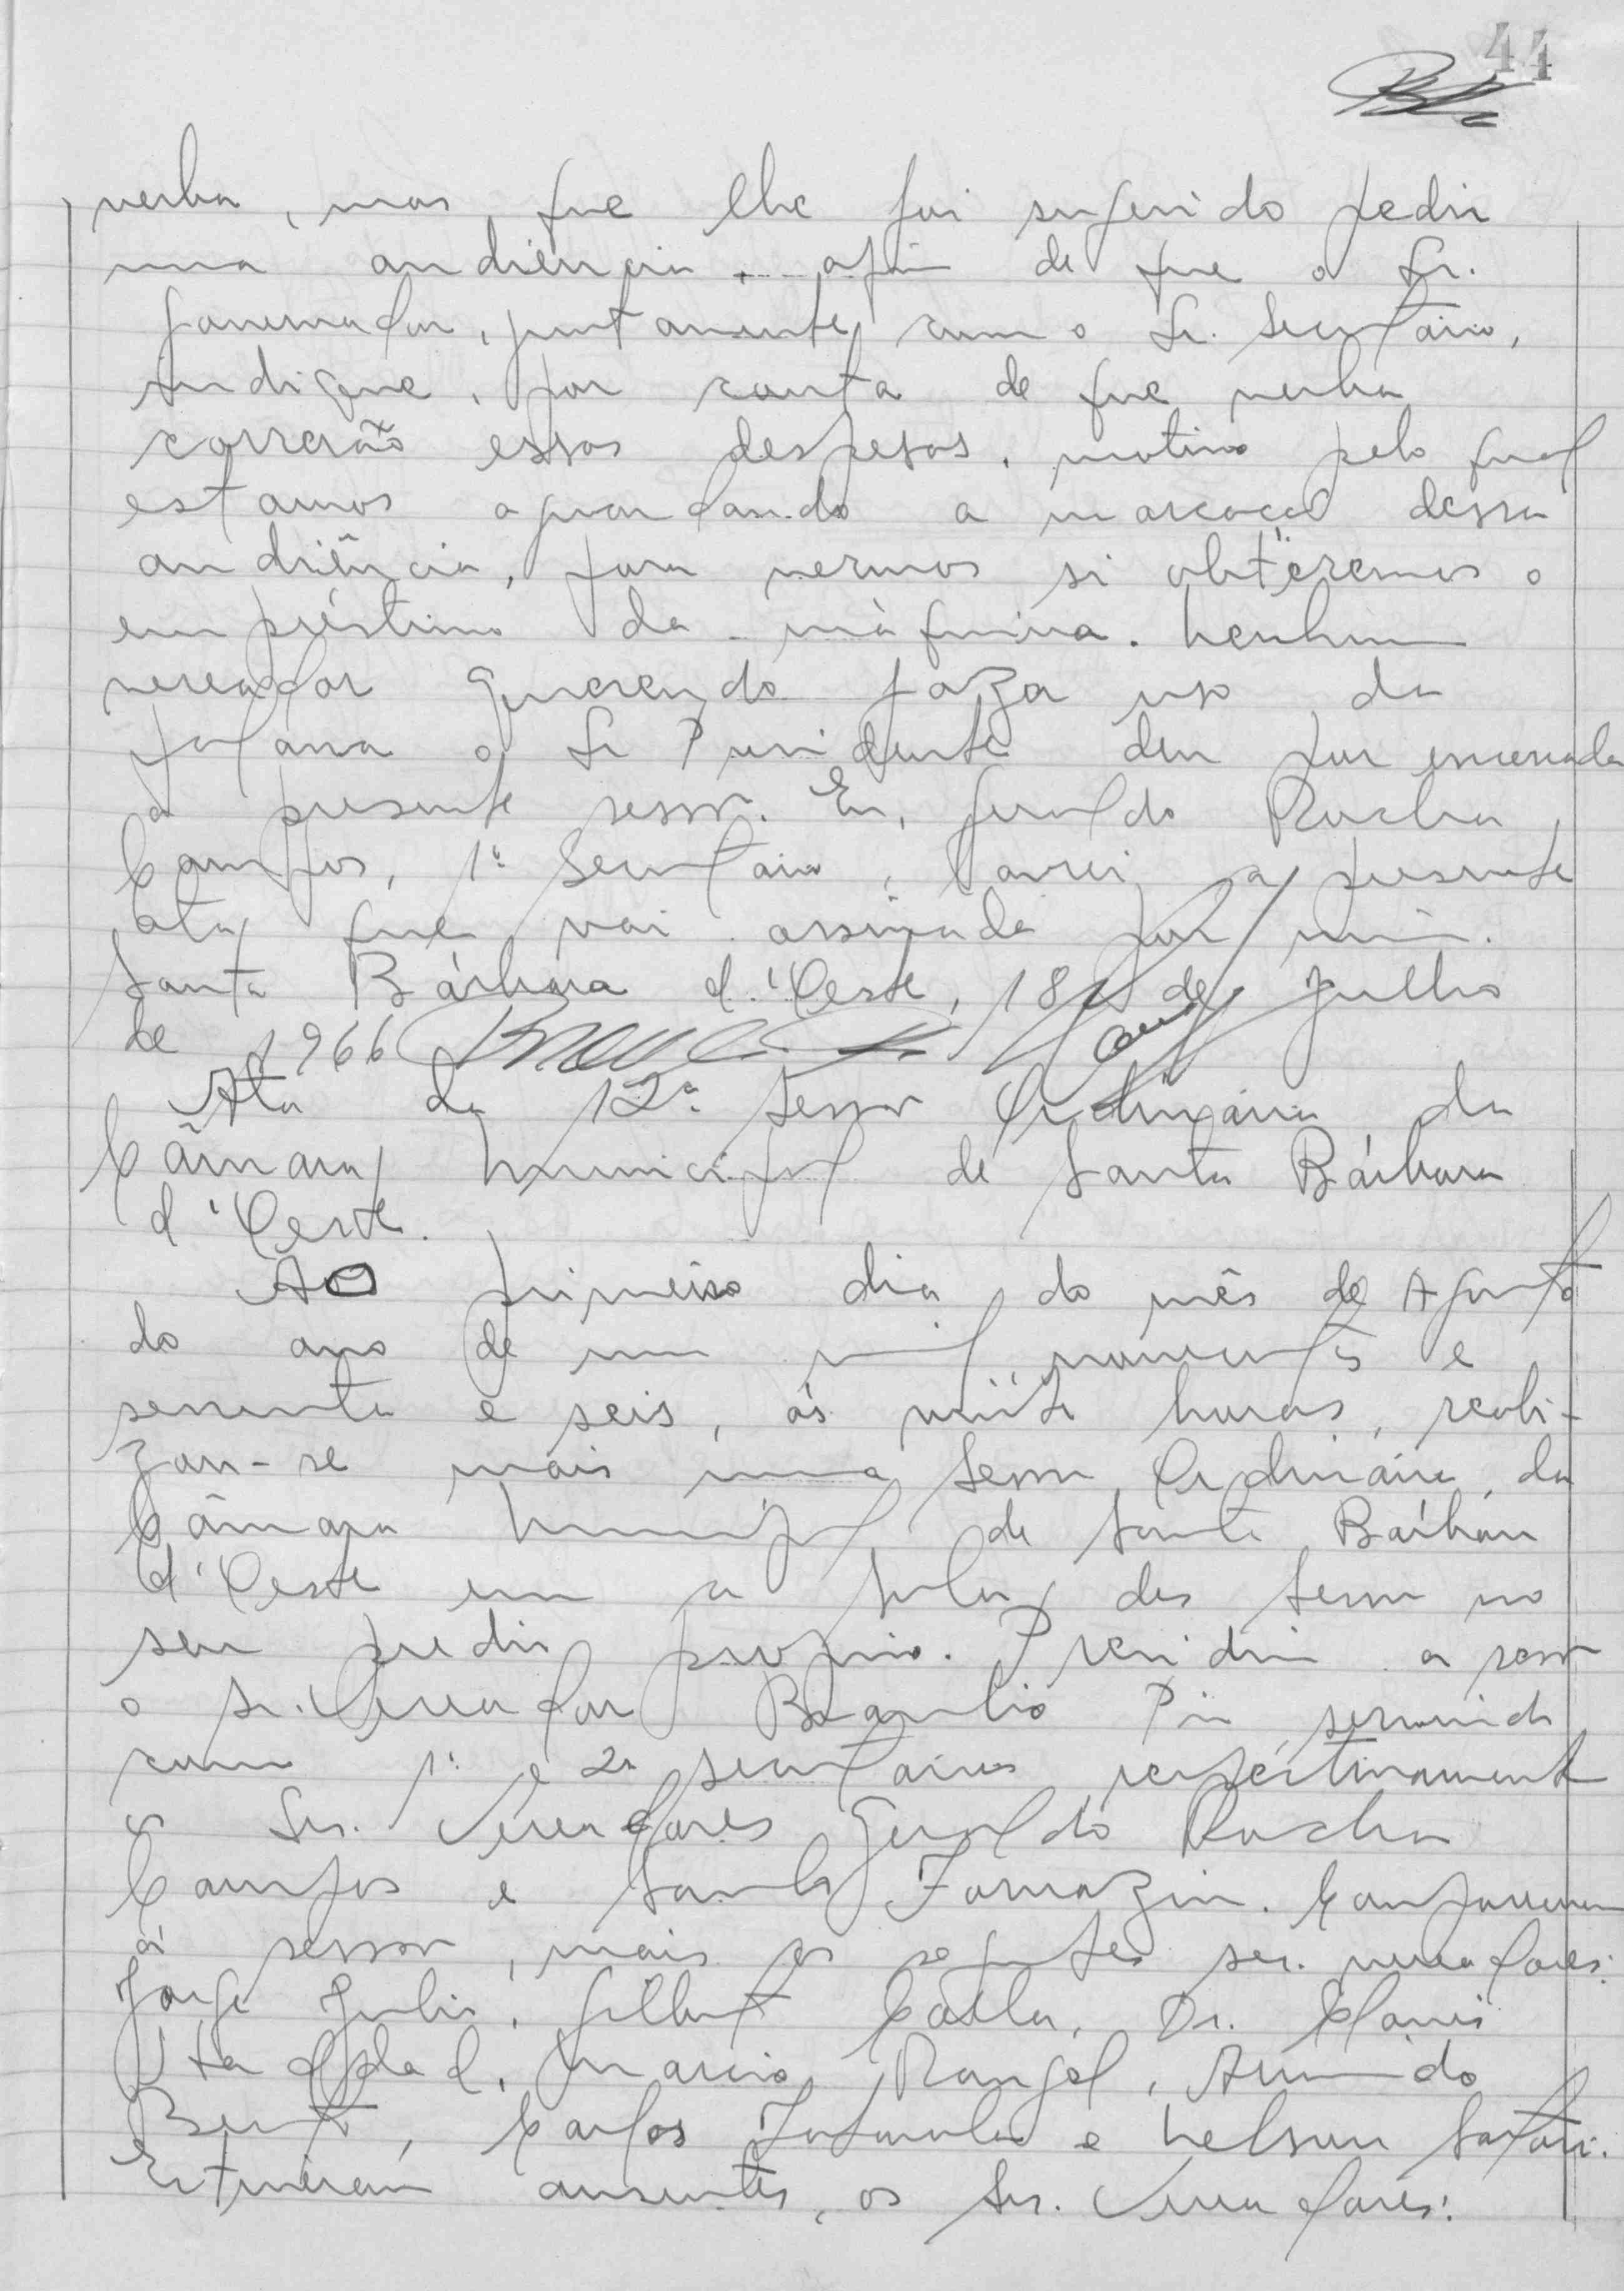 44
verba, mas, que lhe foi sugerido pedir
uma audiência, afim de que o Sr.
Governador, juntamente com o Sr. Secretário,
indique, por conta de que verba
correrão essas despesas, motivo pelo qual
estamos aguardando a marcação dessa
audiência, para vermos si obteremos o
empréstimo da máquina. Nenhum
vereador querendo fazer uso da
palavra o Sr Presidente deu por encerrada
a presente sessão. Eu, Geraldo Rocha
Campos, 1º Secretário, lavrei a presente
ata que vai assinada por mim.
Santa Bárbara d'Oeste, 18 de Julho
de 1966
Ata da 12ª Sessão Ordinária da
Câmara Municipal de Santa Bárbara
d'Oeste.
Ao primeiro dia do mês de Agosto
do ano de um mil novecentos e
sessenta e seis, ás vinte horas, reali-
zou-se mais uma Sessão Ordinária da
Câmara Municipal de Santa Bárbara
d'Oeste em a sala das Sessão no
seu predio proprio. Presidiu a sessão
o Sr. Vereador Braulio Pio, servindo
como 1º e 2º secretários respectivamente
os Srs. Vereadores Geraldo Rocha
Campos e Santo Fornazin. Compareceram
á sessão, mais os seguintes srs. vereadores:
Jorge Julio, Gilberto Dr.
Marcio Rangel, Armindo
Bento, Carlos e Nelson
Estiveram ausentes, os Srs. Vereadores: